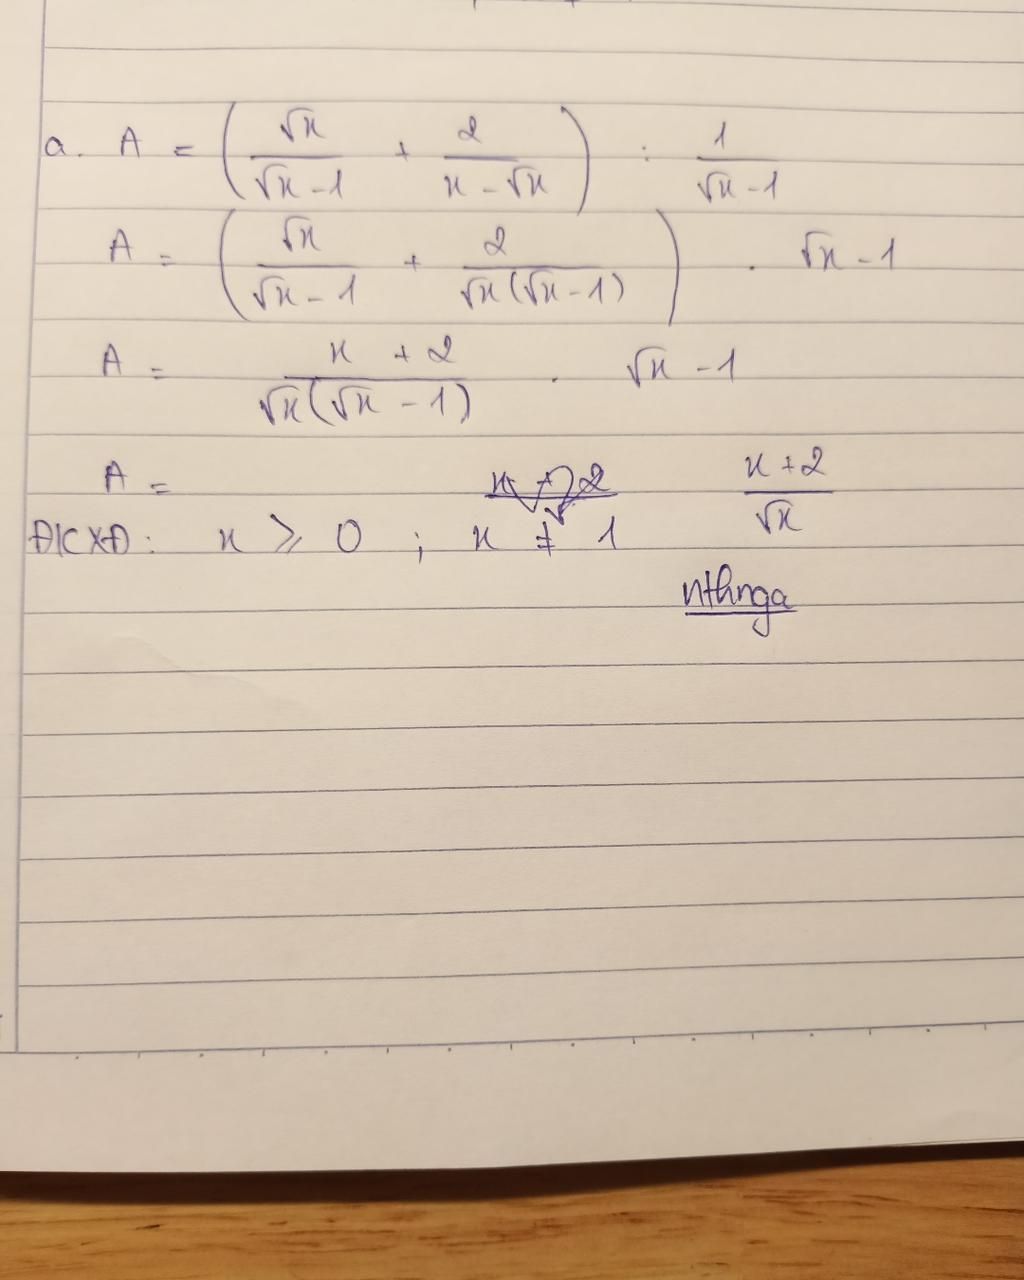 a. A = (√x / (√x - 1) + 2 / (x - √x)) : 1 / (√x - 1)
A = (√x / (√x - 1) + 2 / (√x(√x - 1))) . √x - 1
A = (x + 2) / (√x(√x - 1)) . √x - 1
A = (x + 2) / √x
ĐKXĐ: x ⩾ 0 ; x ≠ 1
nthnga